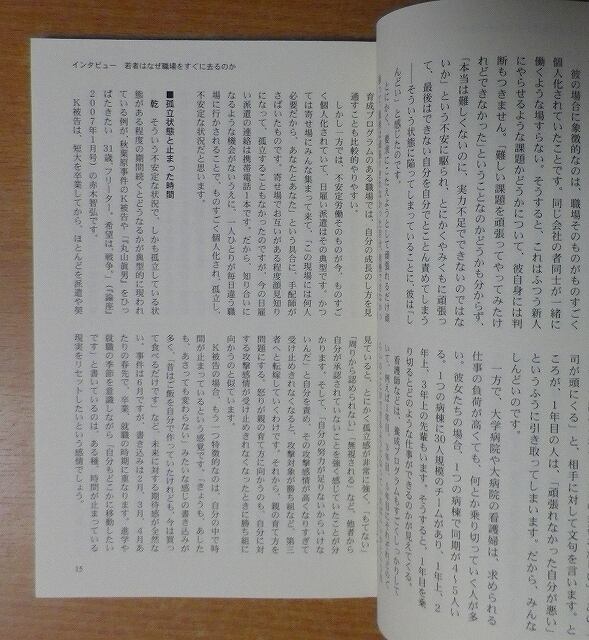 彼の場合に象徴的なのは、職場そのものがものすごく
個人化されていたことです。同じ会社の者同士が一緒に
働くような場すらない。そうすると、これはふつう新人
にやらせるような課題かどうかについて、彼自身には判
断もつきません。「難しい課題を頑張ってやってみたけ
れどできなかった」ということなのかどうかも分からず、
「本当は難しくないのに、実力不足でできないのではな
いか」という不安に駆られ、とにかくやみくもに頑張っ
て、最後はできない自分を自分でとことん責めてしまう
――そういう状態に陥ってしまっていることに、彼は「し
んどい」と感じたのです。
司が頭にくる」と、相手に対して文句を言います。と
ころが、1年目の人は、「頑張れなかった自分が悪い」
というふうに引き取ってしまいます。だから、みんな
しんどいのです。
一方で、大学病院や大病院の看護婦は、求められる
仕事の負荷が高くても、何とか乗り切っていく人が多
い。彼女たちの場合、1つの病棟で同期が4~5人い
る。1つの病棟に30人規模のチームがあり、1年上、2
年上、3年上の先輩もいます。そうすると、1年目を乗
り切るとどのような仕事ができるのかが見えてくる。
看護師などは、養成プログラムもすごくしっかりして
インタビュー 若者はなぜ職場をすぐに去るのか
育成プログラムのある職場では、自分の成長のし方を見
通すことも比較的やりやすい。
しかし一方では、不安定労働そのものが今、ものすご
く個人化されていて、日雇い派遣はその典型です。かつ
ては寄せ場にみんな集まって来て、「この現場には何人
必要だから、あなたとあなた」という具合に、手配師が
さばいたものです。寄せ場でお互いがある程度顔見知り
になって、孤立することもなかったのですが、今の日雇
い派遣の連絡は携帯電話1本です。だから、知り合いに
なるような機会がないうえに、一人ひとりが毎日違う職
場に行かされることで、ものすごく個人化され、孤立し、
不安定な状況だと思います。
■孤立状態と止まった時間
乾 そういう不安定な状況で、しかも孤立している状
態がある程度の期間続くとどうなるかが典型的に現われ
ている例が、秋葉原事件のK被告や「『丸山眞男』をひっ
ぱたきたい 31歳、フリーター。希望は、戦争。」(『論座』
2007年1月号)の赤木智弘です。
K被告は、短大を卒業してから、ほとんどを派遣や契
見ていると、とにかく孤立感が非常に強く、「もてない」
「周りから認められない」「無視される」など、他者から
自分が承認されていないことを強く感じていたことが分
かります。そして、「自分の努力が足りないからいけな
いんだ」と自分を責め、その攻撃感情が高くなりすぎて
受け止めきれなくなると、攻撃対象が勝ち組など、第三
者へと転嫁していくわけです。それから、親の育て方を
問題にする、怒りが親の育て方に向かうのも、自分に対
する攻撃感情が受け止めきれなくなったときに勝ち組に
向かうのと似ています。
K被告の場合、もう一つ特徴的なのは、自分の中で時
間が止まっているという感覚です。「きょうも、あした
も、あさっても変わらない」みたいな感じの書き込みが
多く、「昔はご飯を自分で作っていたけれども、今は買っ
て食べるだけです」など、未来に対する期待感が全然な
い。事件は6月ですが、書き込みは2月、3月、4月あ
たりの春先で、卒業、就職の時期に重なります。進学や
就職の季節を意識しながら「自分もどこかに移動したい
です」と書いているのは、ある種、時間が止まっている
現実をリセットしたいという感情でしょう。
15